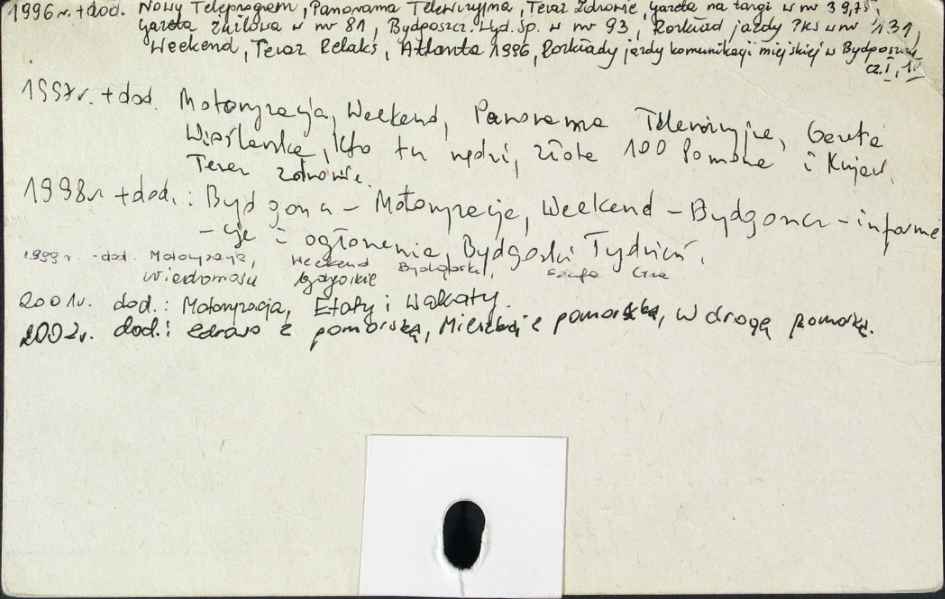 1996r. + dod. Nowy Teleprogram, Panorama Telewizyjna, Teraz Zdrowie, Gazeta na targi w nr 39,
Gazeta w nr 81, Bydgoszcz. Wyd. Sp. w nr 93, Rozkład jazdy PKS w nr 131,
Weekend, Teraz Relaks, Atlanta 1996, Rozkłady jazdy komunikacji miejskiej w Bydgoszczy
cz. I,
1997r. + dod. Motoryzacja, Weekend, Panorama Telewizyjna, Gazeta
Wiślana, Kto tu rządzi, Złote 100 Pomorza i Kujaw,
Teraz zdrowie.
1998r + dod.: Bydgona - Motoryzacje, Weekend - Bydgona - informa
- cje i ogłoszenia, Bydgoski Tydzień.
1999r - dod. Motoryzacja, Weekend
wiadomości bydgoskie
2001r. dod.: Motoryzacja, Etaty i Wakaty.
2002r. dod.: zdrowo z pomorską, Mieszkaj z pomorską, W drogę z pomorską.